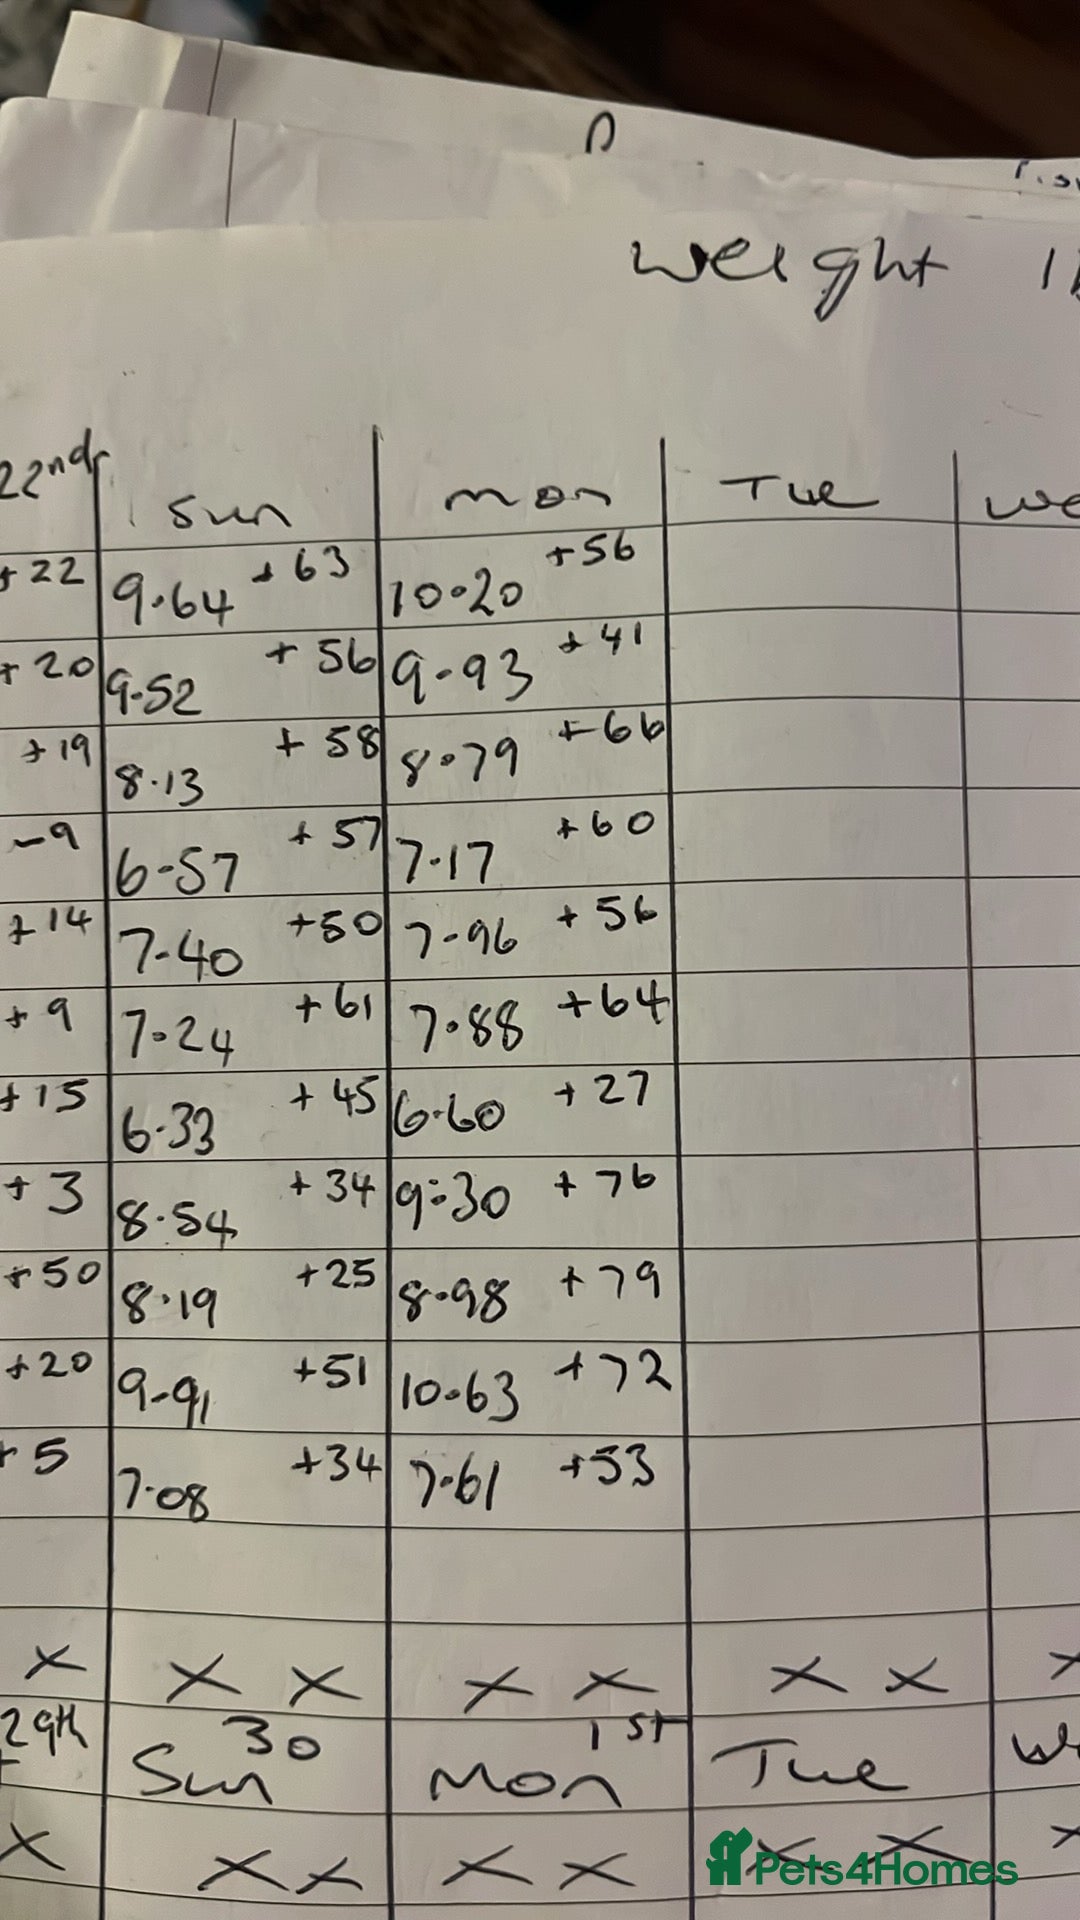 weight
22nd Sun Mon Tue We
+22 9.64 +63 10.20 +56
+20 9.52 +56 9.93 +41
+19 8.13 +58 8.79 +66
-9 6.57 +57 7.17 +60
+14 7.40 +50 7.96 +56
+9 7.24 +61 7.88 +64
+15 6.33 +45 6.60 +27
+3 8.54 +34 9.30 +76
+50 8.19 +25 8.98 +79
+20 9.91 +51 10.63 +72
+5 7.08 +34 7.61 +53
X X X X X X X X
29th Sun 30 Mon 1st Tue We
X X X X X X X X
Pets4Homes